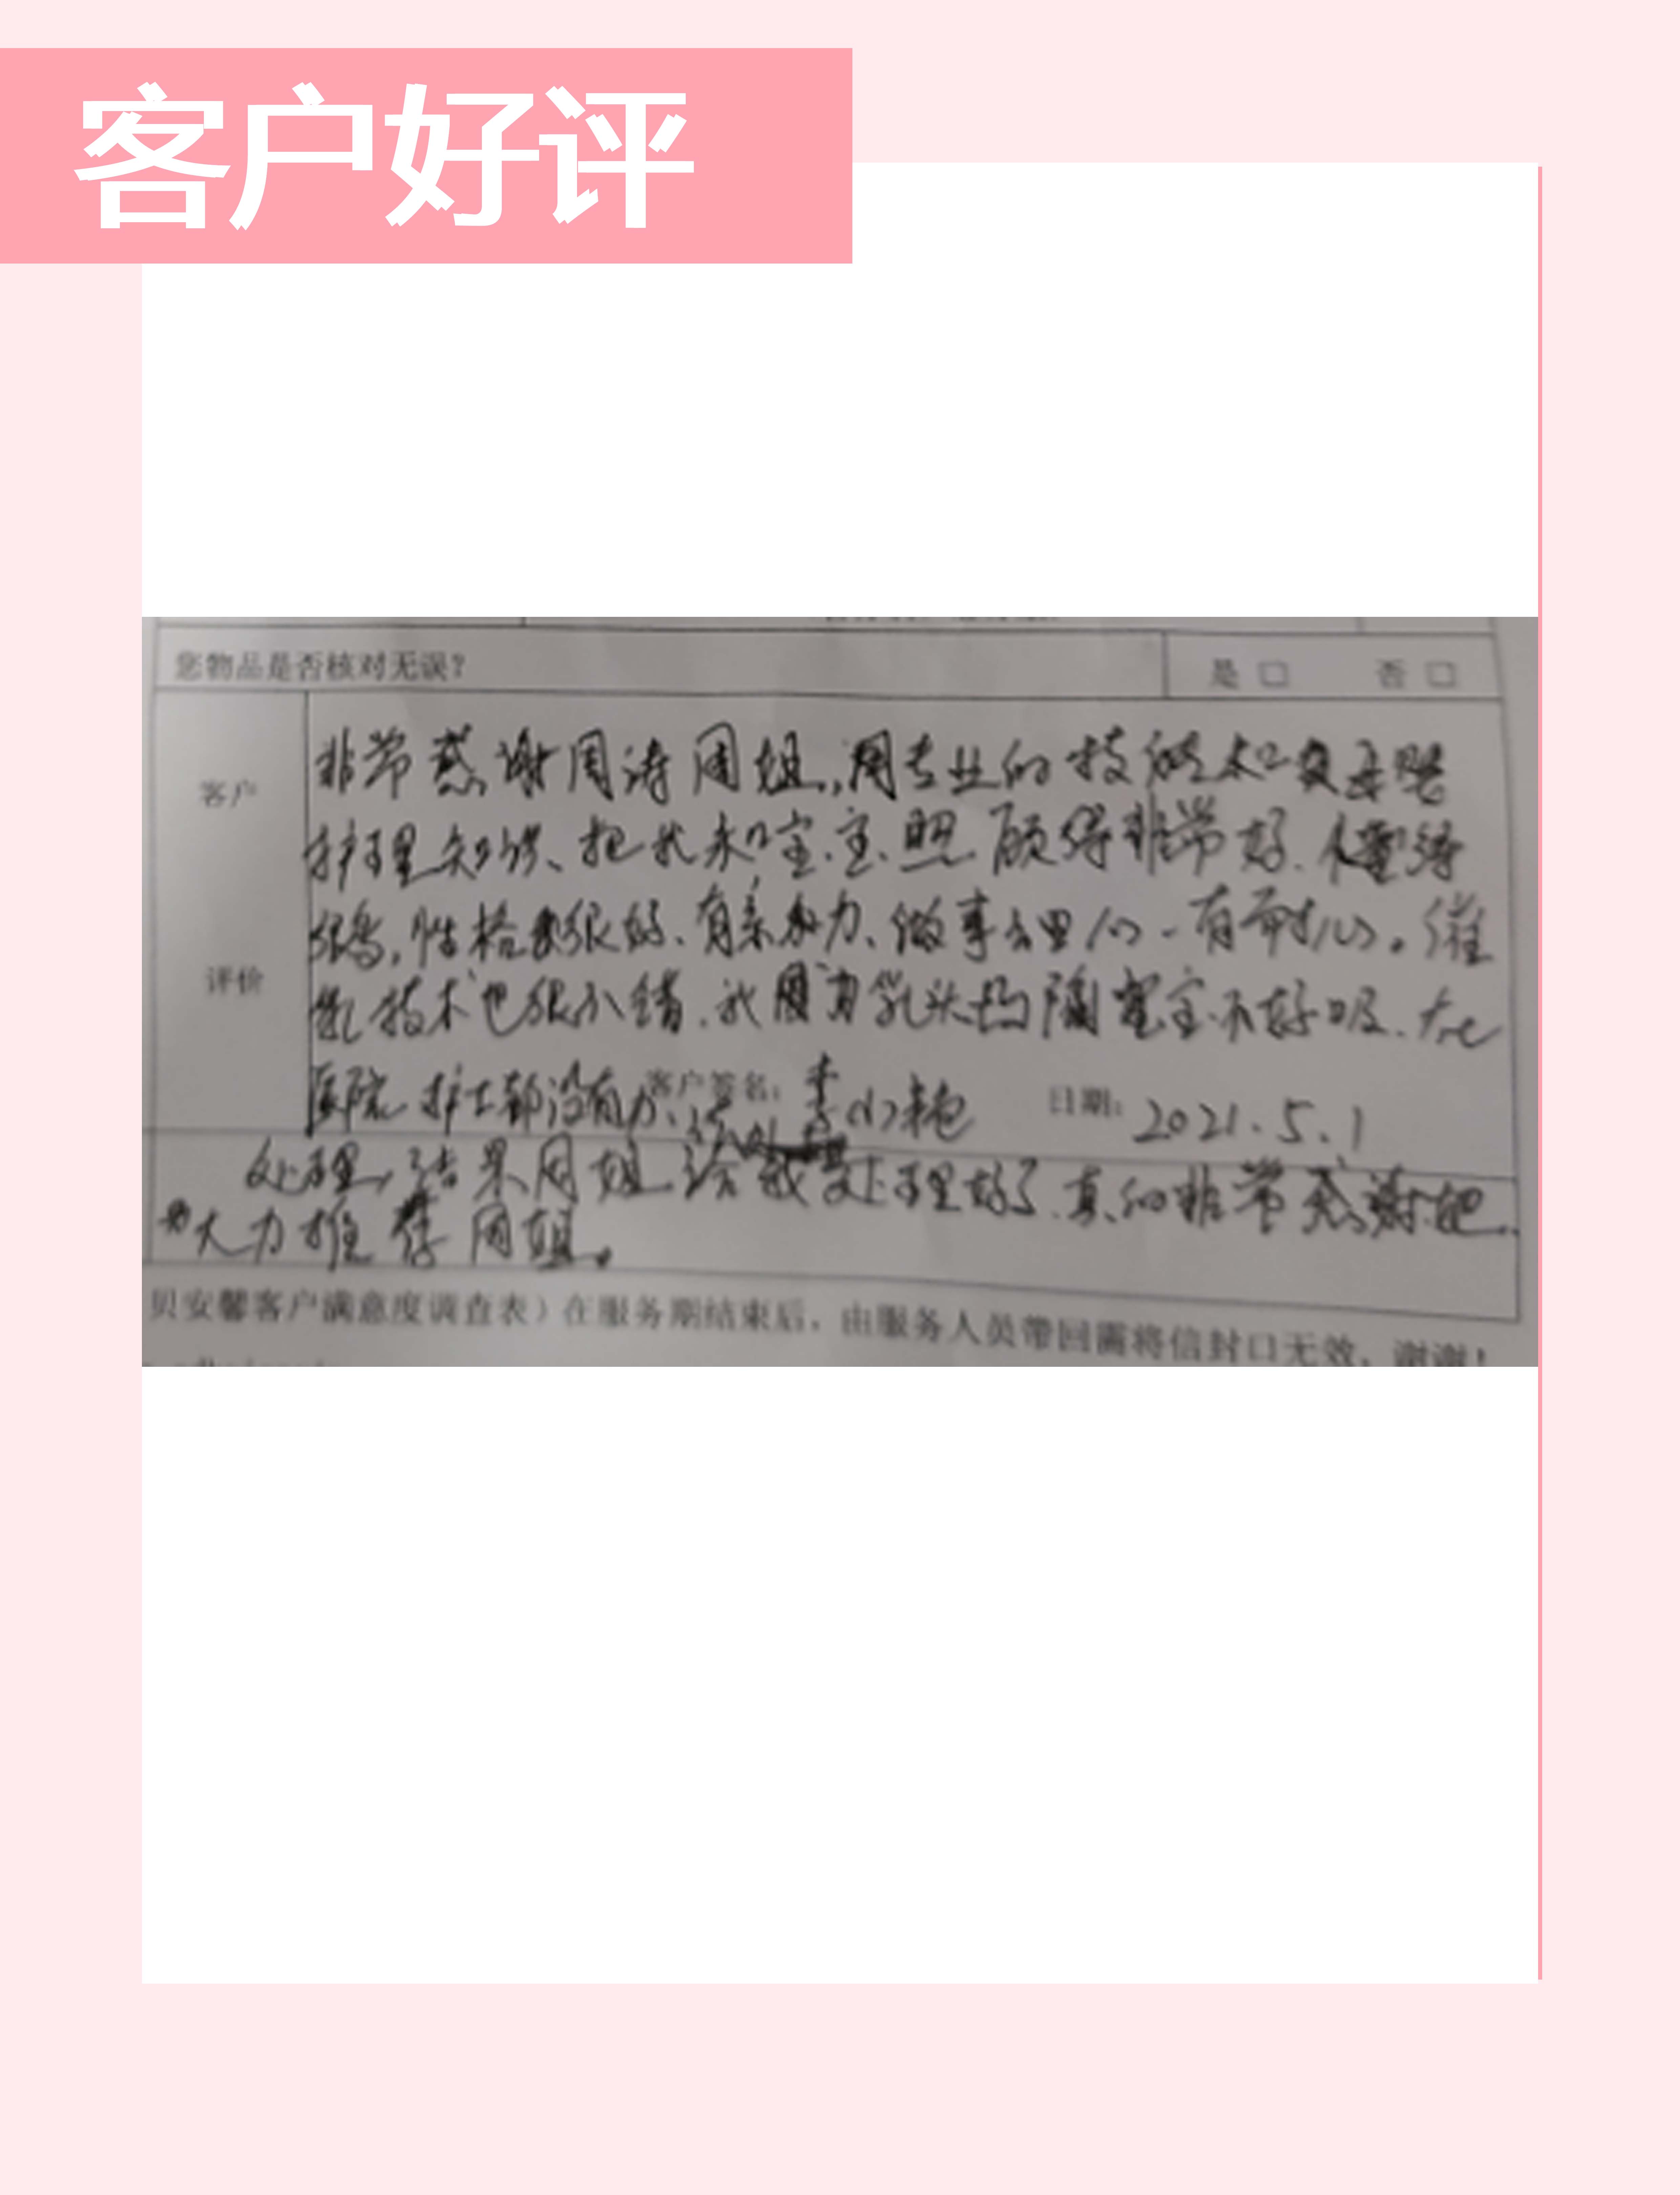 客户好评
您物品是否核对无误？ 是 □ 否 □
客户
评价
非常感谢周涛周姐，用专业的技能和安母婴
护理知识、把我和宝宝照顾得非常好.人
很好，性格很好、有亲和力、做事、有耐心。催
乳技术也很不错.我因为乳头凹陷宝宝不好吸.在
医院护士都没有办法
客户签名： 李小艳 日期： 2021.5.1
处理，结果周姐给我处理好了.真的非常感谢她.
大力推荐周姐。
贝安馨客户满意度调查表）在服务期结束后，由服务人员带回需将信封口无效，谢谢！